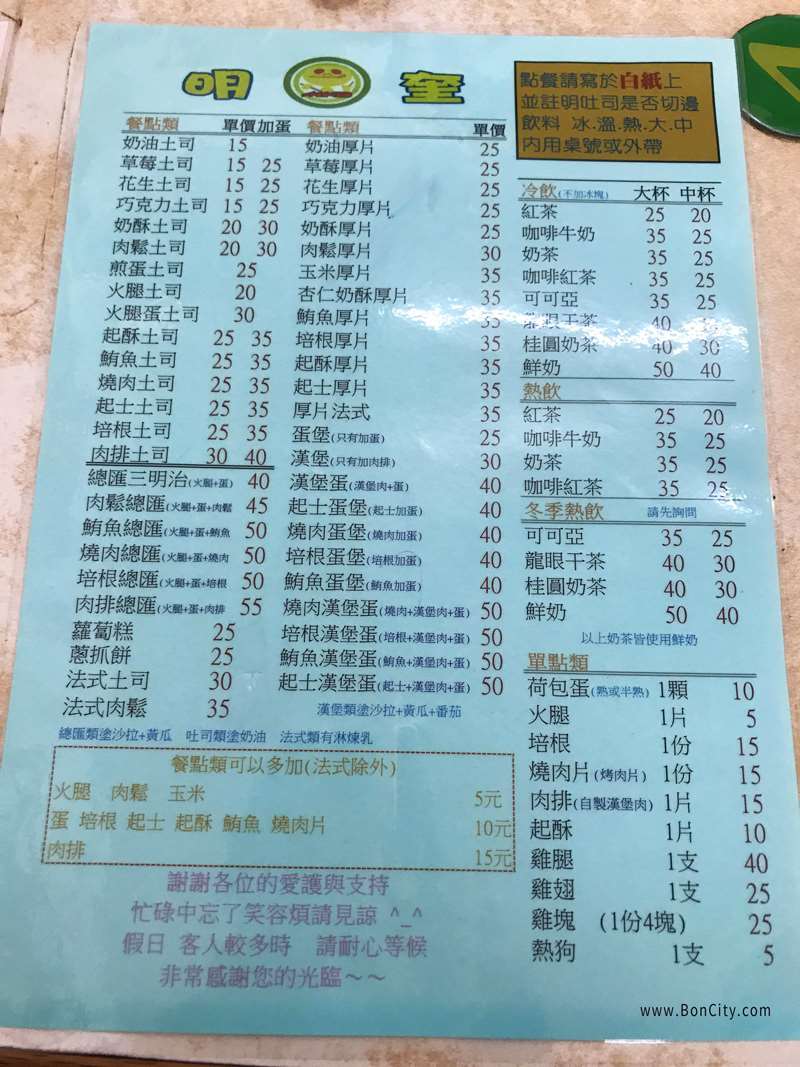 明 奎
點餐請寫於白紙上
並註明吐司是否切邊
飲料 冰.溫.熱.大.中
內用桌號或外帶
餐點類 單價 加蛋
奶油土司 15
草莓土司 15 25
花生土司 15 25
巧克力土司 15 25
奶酥土司 20 30
肉鬆土司 20 30
煎蛋土司 25
火腿土司 20
火腿蛋土司 30
起酥土司 25 35
鮪魚土司 25 35
燒肉土司 25 35
起士土司 25 35
培根土司 25 35
肉排土司 30 40
總匯三明治(火腿+蛋) 40
肉鬆總匯(火腿+蛋+肉鬆 45
鮪魚總匯(火腿+蛋+鮪魚 50
燒肉總匯(火腿+蛋+燒肉 50
培根總匯(火腿+蛋+培根 50
肉排總匯(火腿+蛋+肉排 55
蘿蔔糕 25
蔥抓餅 25
法式土司 30
法式肉鬆 35
餐點類 單價
奶油厚片 25
草莓厚片 25
花生厚片 25
巧克力厚片 25
奶酥厚片 25
肉鬆厚片 30
玉米厚片 35
杏仁奶酥厚片 35
鮪魚厚片 35
培根厚片 35
起酥厚片 35
起士厚片 35
厚片法式 35
蛋堡(只有加蛋) 25
漢堡(只有加肉排) 30
漢堡蛋(漢堡肉+蛋) 40
起士蛋堡(起士加蛋) 40
燒肉蛋堡(燒肉加蛋) 40
培根蛋堡(培根加蛋) 40
鮪魚蛋堡(鮪魚加蛋) 40
燒肉漢堡蛋(燒肉+漢堡肉+蛋) 50
培根漢堡蛋(培根+漢堡肉+蛋) 50
鮪魚漢堡蛋(鮪魚+漢堡肉+蛋) 50
起士漢堡蛋(起士+漢堡肉+蛋) 50
漢堡類塗沙拉+黃瓜+番茄
總匯類塗沙拉+黃瓜 吐司類塗奶油 法式類有淋煉乳
餐點類可以多加(法式除外)
火腿 肉鬆 玉米 5元
蛋 培根 起士 起酥 鮪魚 燒肉片 10元
肉排 15元
謝謝各位的愛護與支持
忙碌中忘了笑容煩請見諒 ^_^
假日 客人較多時 請耐心等候
非常感謝您的光臨～～
冷飲(不加冰塊) 大杯 中杯
紅茶 25 20
咖啡牛奶 35 25
奶茶 35 25
咖啡紅茶 35 25
可可亞 35 25
龍眼干茶 40
桂圓奶茶 40 30
鮮奶 50 40
熱飲
紅茶 25 20
咖啡牛奶 35 25
奶茶 35 25
咖啡紅茶 35 25
冬季熱飲 請先詢問
可可亞 35 25
龍眼干茶 40 30
桂圓奶茶 40 30
鮮奶 50 40
以上奶茶皆使用鮮奶
單點類
荷包蛋(熟或半熟) 1顆 10
火腿 1片 5
培根 1份 15
燒肉片(烤肉片) 1份 15
肉排(自製漢堡肉) 1片 15
起酥 1片 10
雞腿 1支 40
雞翅 1支 25
雞塊 (1份4塊) 25
熱狗 1支 5
www.BonCity.com